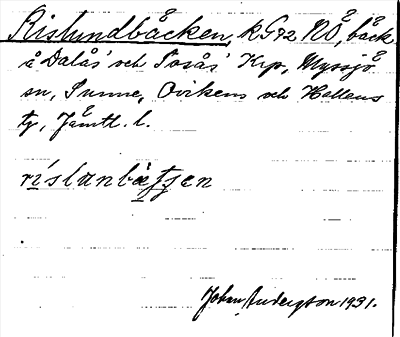 Rislundbäcken, k G 72 NÖ, bäck
å Dalås' och Sösås' Krp, Myssjö
sn, Sunne, Ovikens och Hellens
tg, Jämtl. l.
rislɑnbæʃʃen
Johan Anderzson 1931.